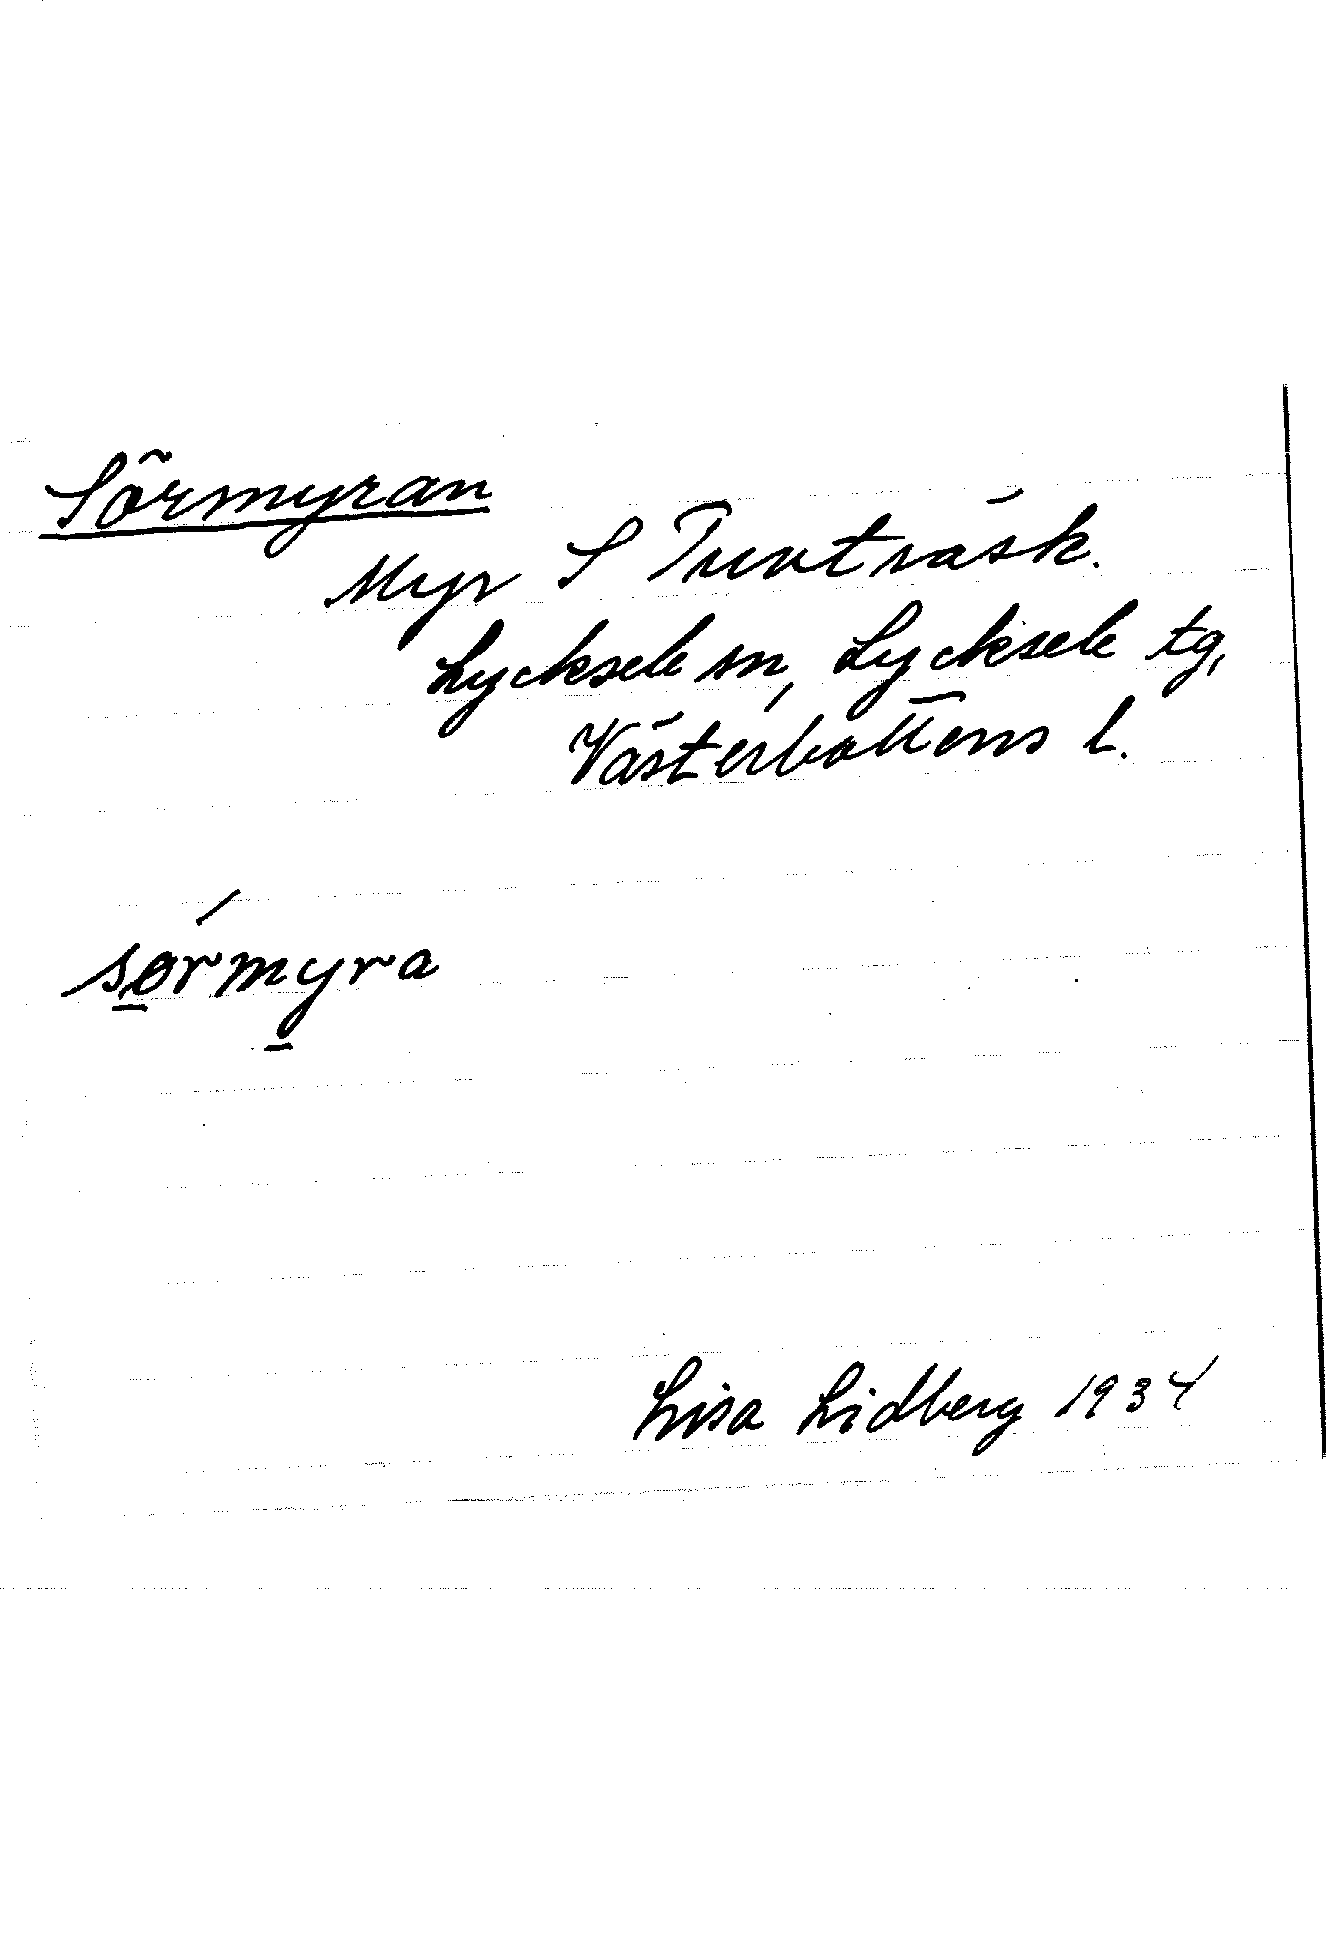 Sörmyran
Myr S Tuvträsk.
Lycksele sn, Lycksele tg,
Västerbottens l.
sørmyra
Lisa Lidberg 1934